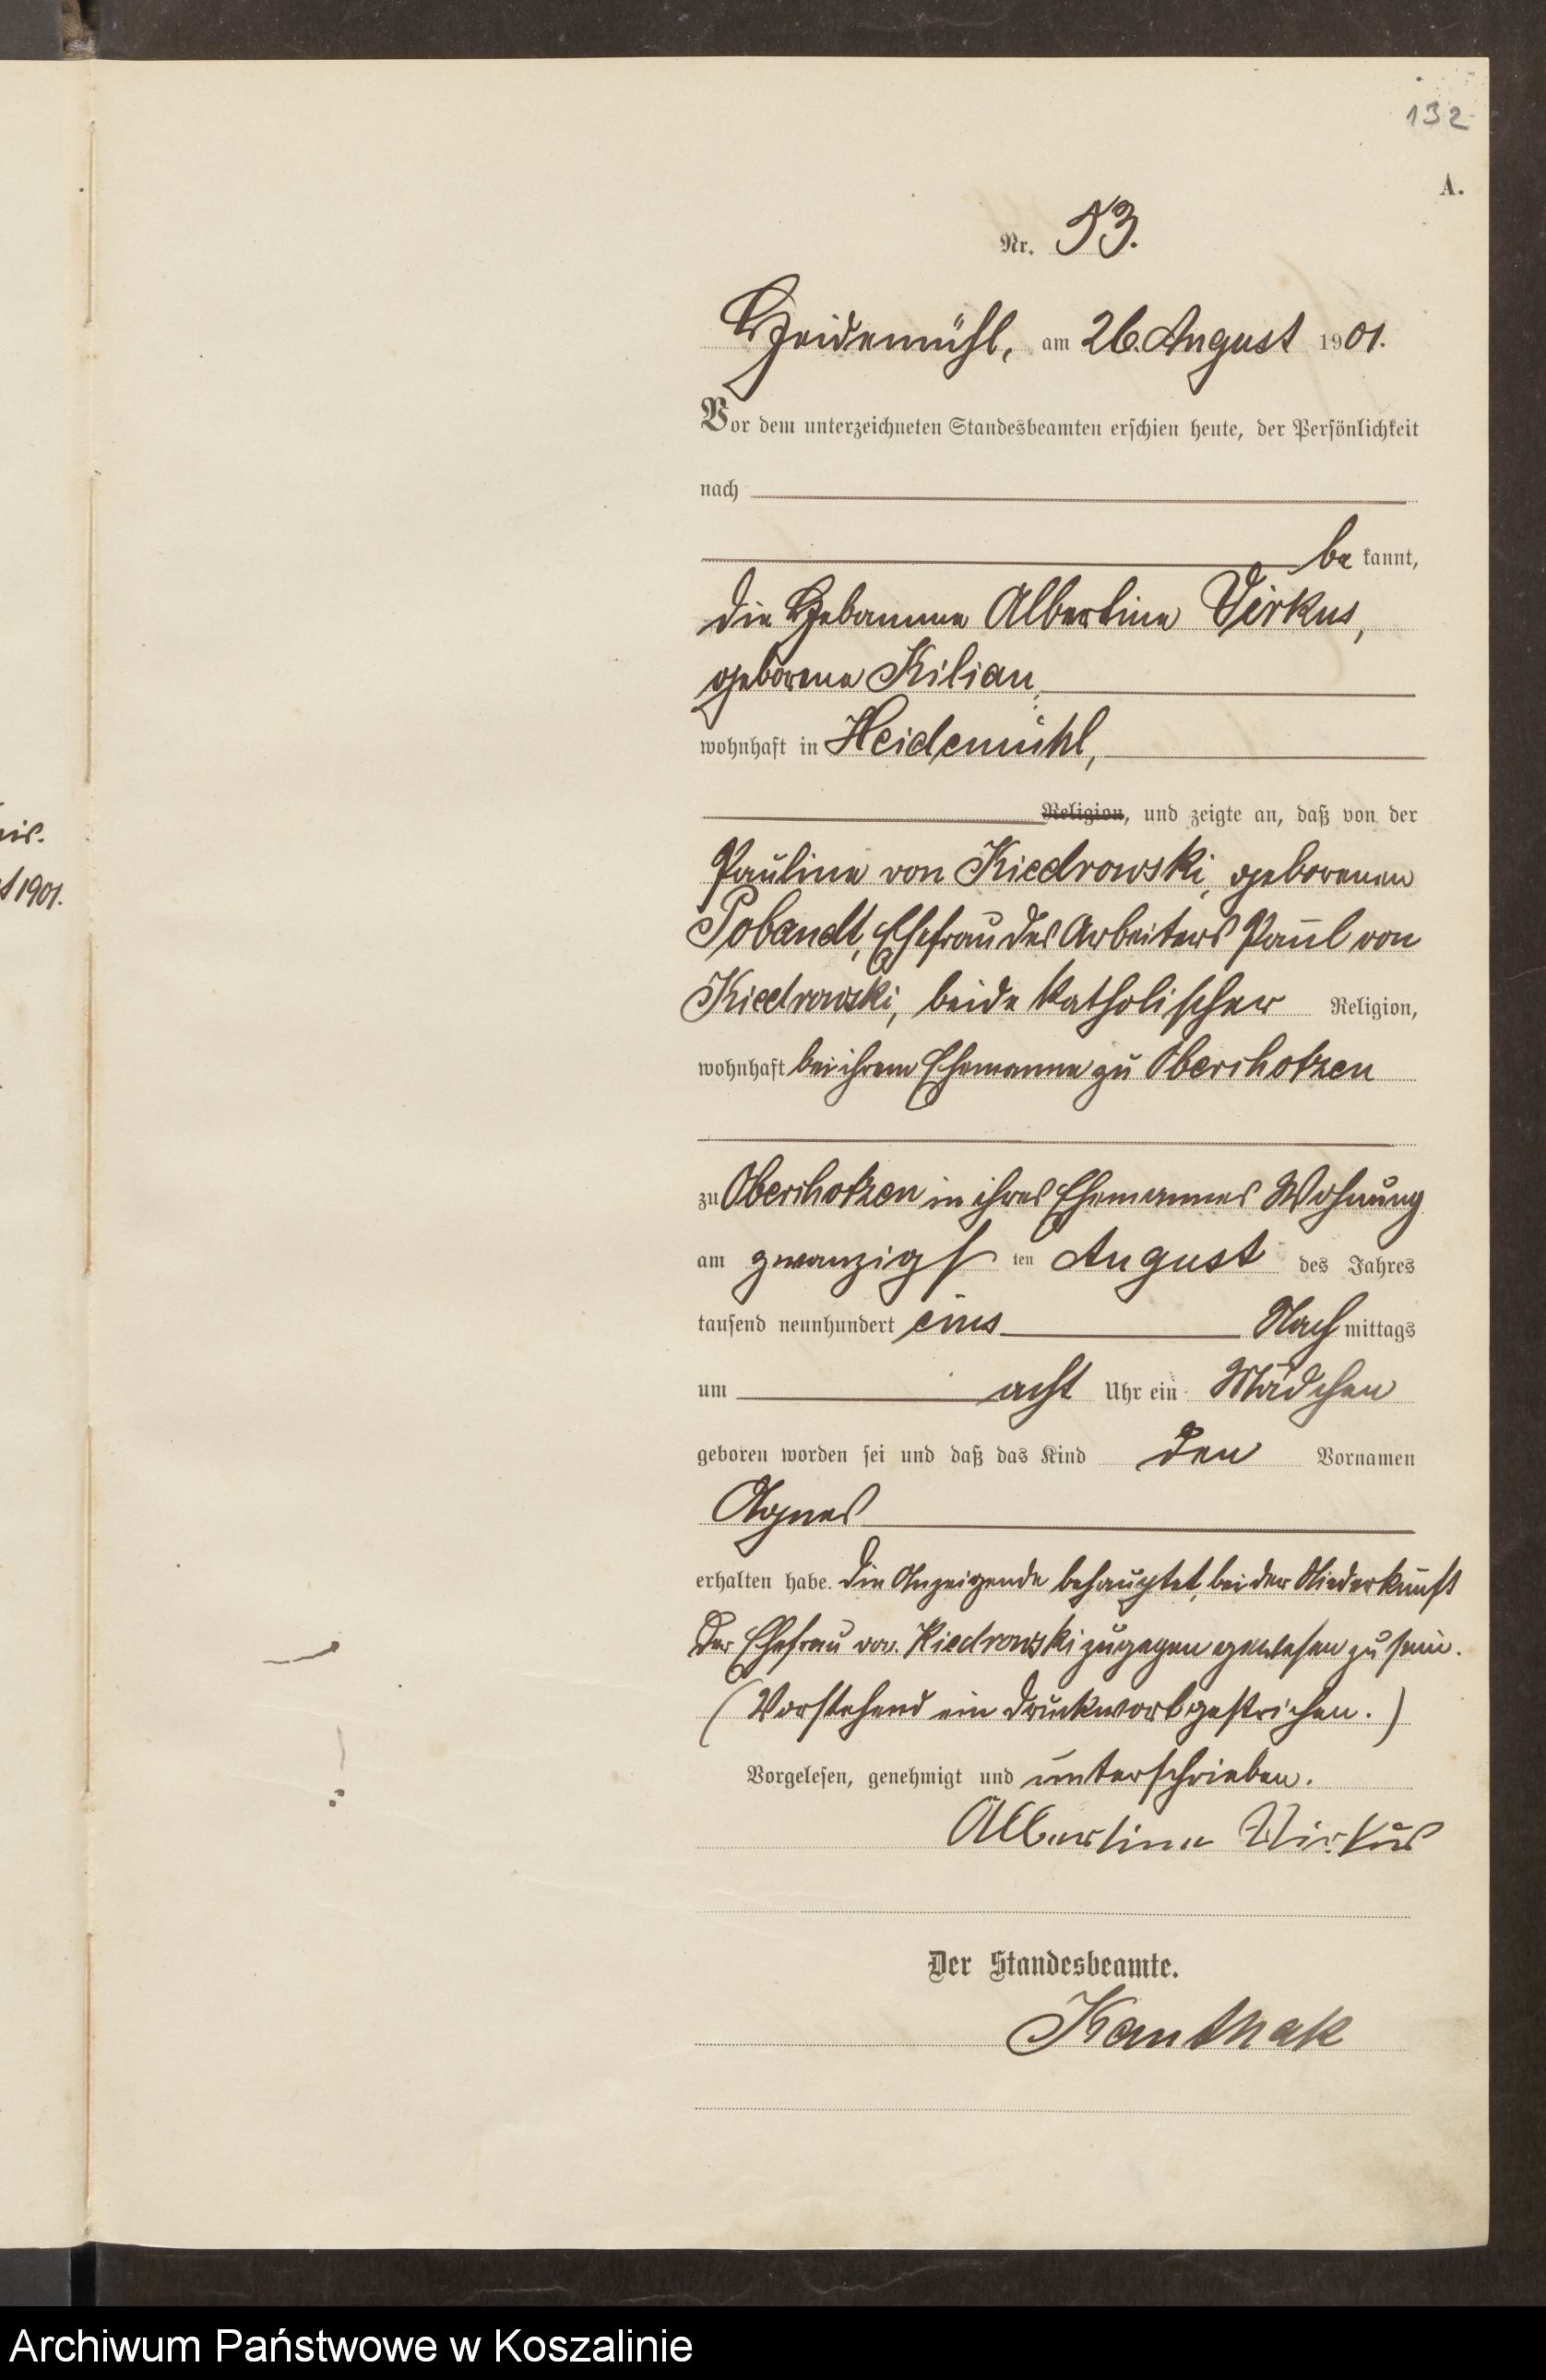 132
A.
Nr. 53.
Heidemühl, am 26. August 1901.
Vor dem unterzeichneten Standesbeamten erschien heute, der Persönlichkeit
nach
be kannt,
die Hebamme Albertine Virkus,
geborene Kilian,
wohnhaft in Heidemühl,
Religion, und zeigte an, daß von der
Pauline von Kiedrowski, geborenen
Pobandt, Ehefrau des Arbeiters Paul von
Kiedrowski, beide katholischer Religion,
wohnhaft bei ihrem Ehemanne zu Oberchotzen
zu Oberchotzen in ihres Ehemannes Wohnung
am zwanzigsten August des Jahres
tausend neunhundert eins Nachmittags
um acht Uhr ein Mädchen
geboren worden sei und daß das Kind den Vornamen
Agnes
erhalten habe. Die Anzeigende behauptet, bei der Niederkunft
der Ehefrau von Kiedrowski zugegen gewesen zu sein.
(Vorstehend ein Druckwort gestrichen.)
Vorgelesen, genehmigt und unterschrieben.
Albertine Virkus
Der Standesbeamte.
Kanthak
1901.
Archiwum Państwowe w Koszalinie